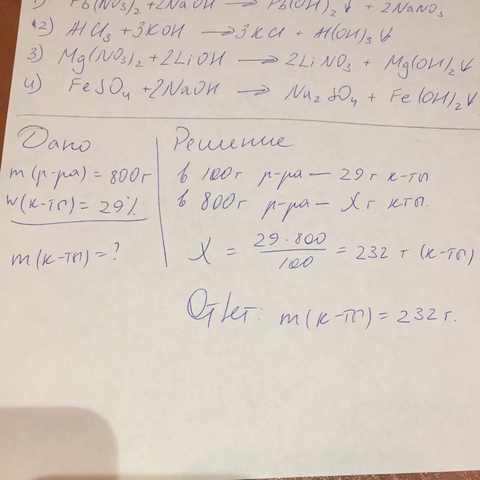 1) Pb(NO₃)₂ + 2NaOH → Pb(OH)₂↓ + 2NaNO₃
2) AlCl₃ + 3KOH → 3KCl + Al(OH)₃↓
3) Mg(NO₃)₂ + 2LiOH → 2LiNO₃ + Mg(OH)₂↓
4) FeSO₄ + 2NaOH → Na₂SO₄ + Fe(OH)₂↓
Дано
m(р-ра) = 800г
w(к-ты) = 29%
m(к-ты) = ?
Решение
в 100г р-ра — 29 г к-ты
в 800г р-ра — Xг кты.
X = 29·800/100 = 232 г (к-ты)
Ответ: m(к-ты) = 232 г.